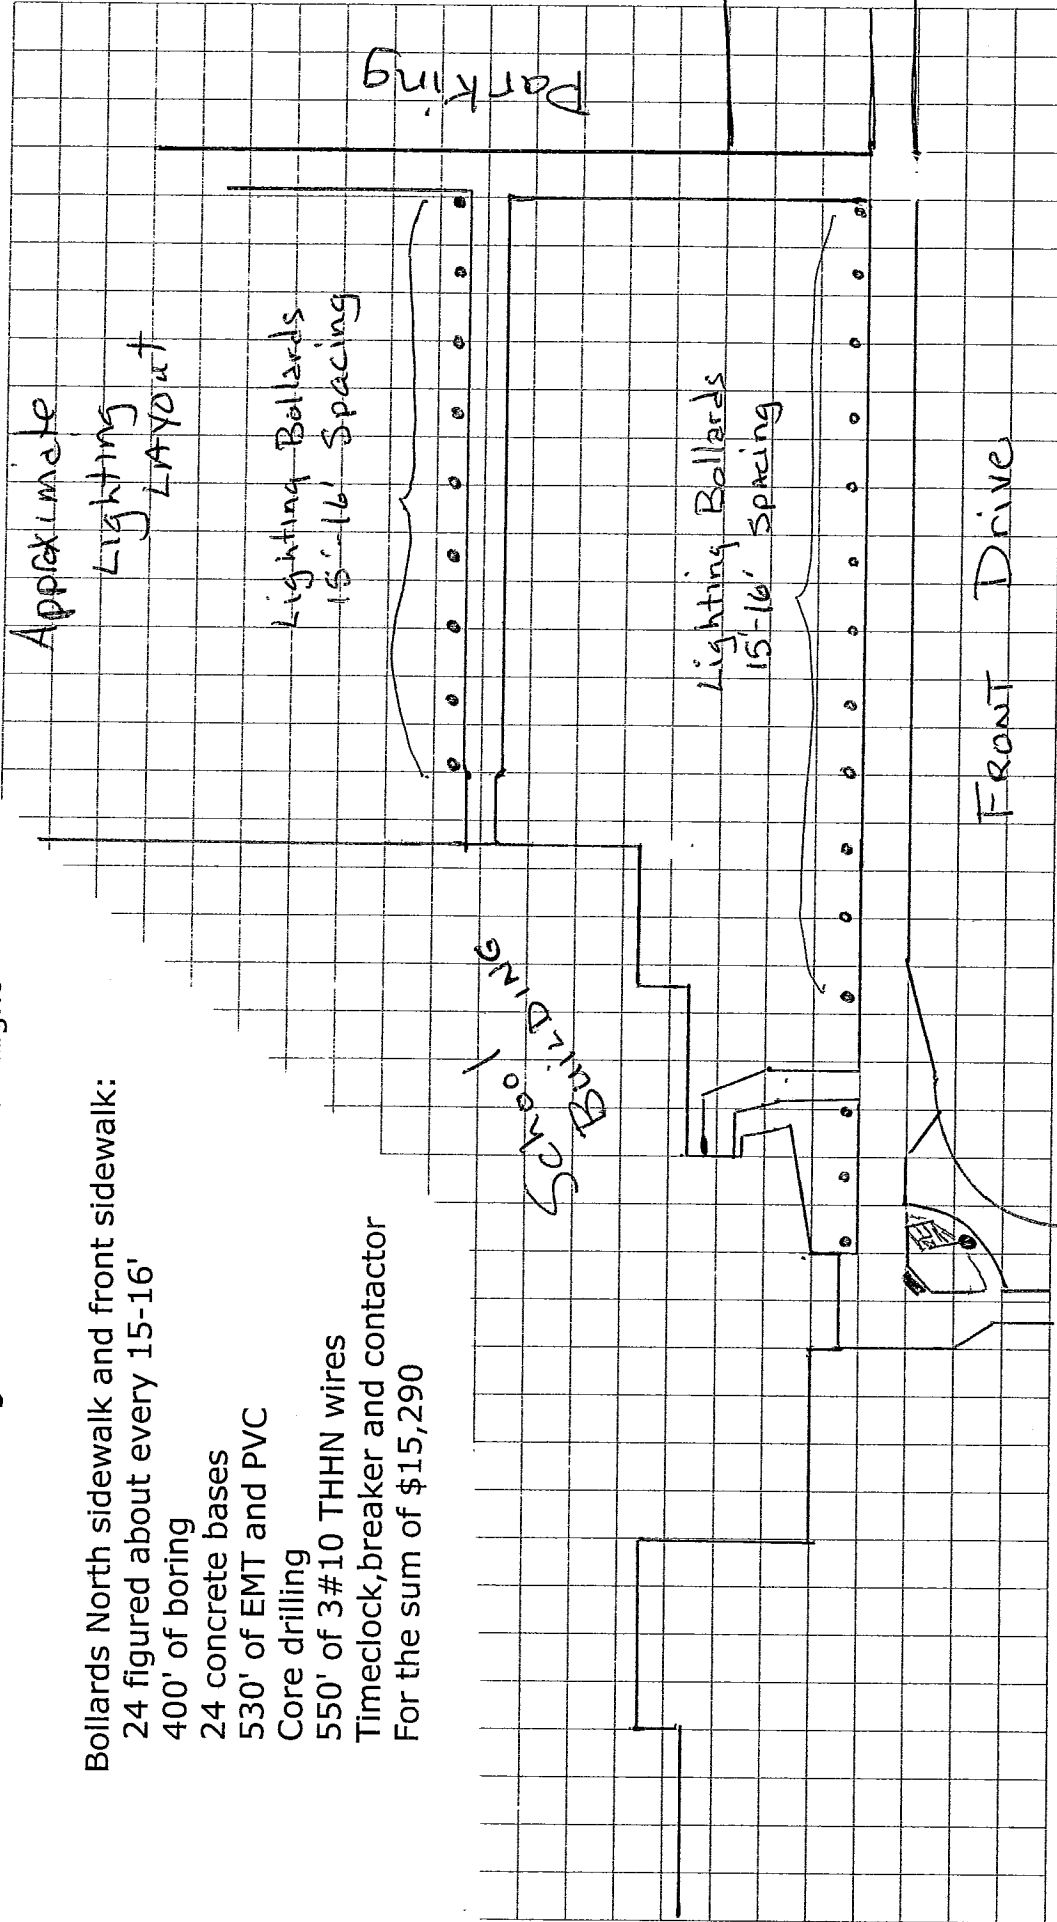 Bollards North sidewalk and front sidewalk:
24 figured about every 15-16'
400' of boring
24 concrete bases
530' of EMT and PVC
Core drilling
550' of 3#10 THHN wires
Timeclock,breaker and contactor
For the sum of $15,290
Approximate
Lighting
LAYout
Lighting Bollards
15'-16' Spacing
Parking
School
BuilDING
Lighting Bollards
15'-16' Spacing
FRONT Drive